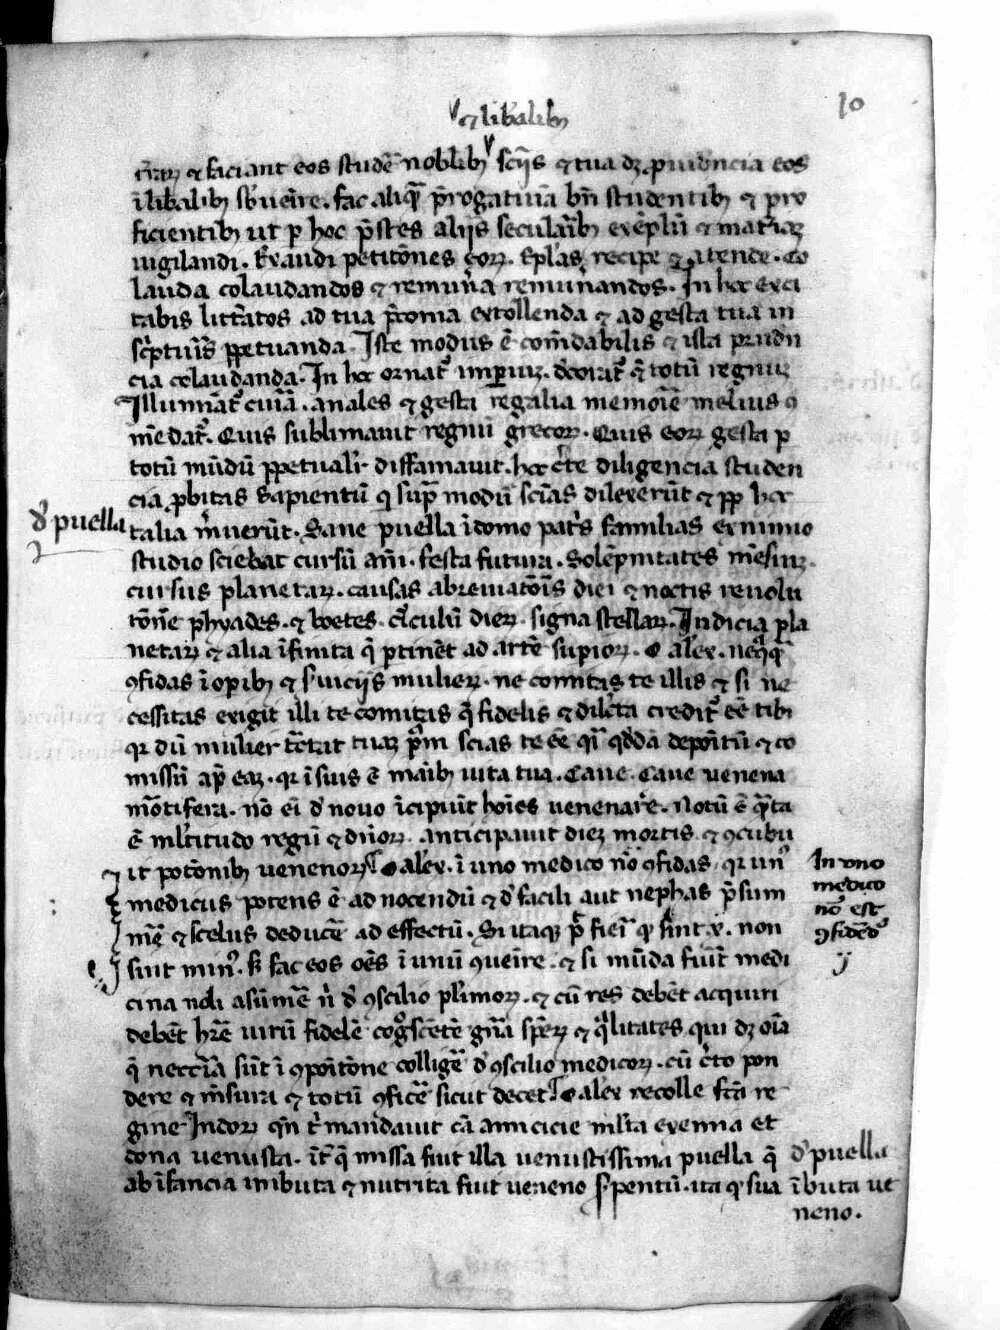 10
⁊ lib̄alibꝫ
⁊ faciant eos studē nob̄libꝫ sc̄ijs ⁊ tua dꝫ prudēncia eos
ī lib̄alibꝫ sb̄ueīre. fac aliq̄ p̄rogatiuā bn̄ studentibꝫ ⁊ pro
ficientibꝫ ut p hoc p̄stes alijs secularibꝫ exēplū ⁊ mat̄iaꝫ
uigilandi. Exaudi petitōnes eoꝝ. Ep̄las recipe ⁊ atende. Co
lauda colaudandos ⁊ remun̄a remun̄andos. In hoc exci
tabis litt̄atos ad tua p̄conia extollenda ⁊ ad gesta tua in
sc̄pturis ꝑpetuanda. Iste modus ē com̄dabilis ⁊ ista prudn̄
cia colaudanda. In hoc ornat᷑ imꝑiuꝫ. decorat᷑ q̄ totū regnuꝫ
Illumīat᷑ curia. anales ⁊ gesta regalia memoīe melius ꝯ
mēdat᷑. Quis sublimauit regnū grecoꝝ. Quis eoꝝ gesta p
totū mūdū ꝑpetualr̄ diffamauit. hoc c̄te diligencia studen
cia ꝓbitas sapientū q̄ sup̄ modū sc̄ias dilexerūt ⁊ ꝓp̄ hoc
d̄ puella
talia m̄uerūt. Sane puella ī domo pat̄s familias ex nimio
studio sciebat cursū an̄i. festa futura. Solēpnitates mēsiuꝫ.
cursus planetaꝝ. causas abreuiatōis diei ⁊ noctis reuolu
tōnē phyades. ⁊ boetes. c̄culū dieꝝ. signa stellaꝝ. Iudicia pla
netaꝝ ⁊ alia īfinita q̄ ꝑtinēt ad artē supioꝝ. O alex̄. neq̄q̄
ꝯfidas ī opibꝫ ⁊ s̄uicijs mulieꝝ. ne comitas te illis ⁊ si ne
cessitas exigit illi te comitas q̄ fidelis ⁊ dilc̄ta credit᷑ eē tibi
qr dū mulier t̄ctat tuaꝫ p̄m scias te eē q̄i q̄dā depoītū ⁊ co
missū ap̄ eaꝫ. qr ī suis ē maībꝫ uita tua. Caue. Caue uenena
mōtifera. nō ei d̄ nouo īcipiūt hoīes uenenare. Notū ē q̄ta
ē ml̄titudo regū ⁊ dn̄oꝝ. anticipauit dieꝫ mortis. ⁊ ꝯcubu
it potōnibꝫ uenenoꝝ O alex̄. ī uno medico nō ꝯfidas. qr un᷒
In vno
medico
nō est
ꝯfidēd᷒
medicus potens ē ad nocendū ⁊ d̄ facili aut nephas p̄sum
mē ⁊ scelus deducē ad effectū. Si itaqꝫ p̄t fieri q̄ sint x. non
sint min᷒. s̄ fac eos oēs ī unū ꝯueīre. ⁊ si mūda fuīt medi
cina noli asūmē n̄ d̄ ꝯscilio pl̄imoꝝ. ⁊ cū res debēt acquiri
debēt hr̄e uirū fidelē cog̊scētē gn̄a sp̄eꝝ ⁊ q̄litates qui dꝫ oīa
q̄ necc̄ia sūt ī ꝯpoītōne colligē d̄ ꝯscilio medicoꝝ. cū c̄to pon
dere ⁊ m̄sura ⁊ totū ꝯficē sicut decet O alex̄ recolle fc̄a re
gine Indoꝝ qn̄ t̄ mandauit cā amicicie ml̄ta exenia et
dona uenusta. īt q̄ missa fuit illa uenustissima puella q̄
ab īfancia inbuta ⁊ nutrita fuit ueneno s̄pentū. ita q̄ sua
d̄ puella
ībuta ue
neno.